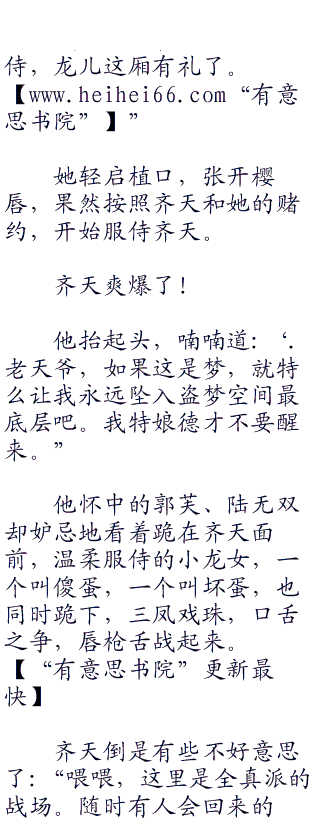 侍，龙儿这厢有礼了。
【www.heihei66.com“有意
思书院”】”
她轻启植口，张开樱
唇，果然按照齐天和她的赌
约，开始服侍齐天。
齐天爽爆了！
他抬起头，喃喃道：‘.
老天爷，如果这是梦，就特
么让我永远坠入盗梦空间最
底层吧。我特娘德才不要醒
来。”
他怀中的郭芙、陆无双
却妒忌地看着跪在齐天面
前，温柔服侍的小龙女，一
个叫傻蛋，一个叫坏蛋，也
同时跪下，三凤戏珠，口舌
之争，唇枪舌战起来。
【“有意思书院”更新最
快】
齐天倒是有些不好意思
了：“喂喂，这里是全真派的
战场。随时有人会回来的